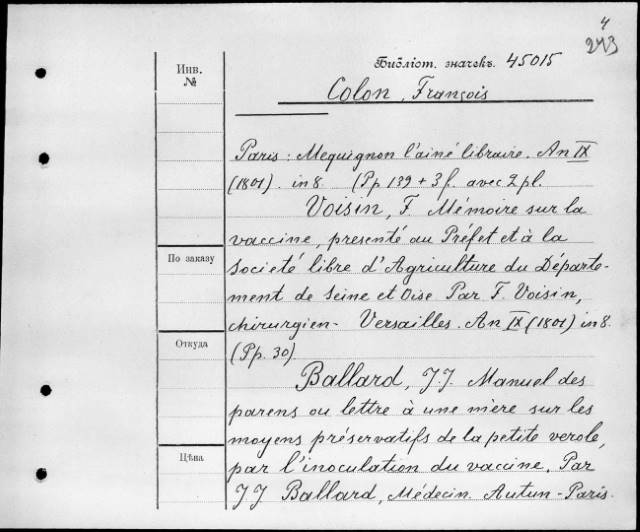 4
243
Инв.
№
Библіот. значекъ. 45015
Colon, François
Paris: Mequignon l'ainé libraire. An IX
(1801). in 8. (Pp 139 + 3 f. avec 2 pl.
Voisin, F. Mémoire sur la
vaccine, presenté au Préfet et à la
Societé libre d'Agriculture du Départe-
По заказу
ment de Seine et Oise Par F. Voisin,
chirurgien- Versailles. An IX (1801) in 8.
Откуда
(Pp. 30).
Ballard, J.J. Manuel des
parens ou lettre à une mère sur les
moyens préservatifs de la petite verole,
Цѣна
par l'inoculation du vaccine. Par
J J Ballard, Médecin. Autun-Paris.